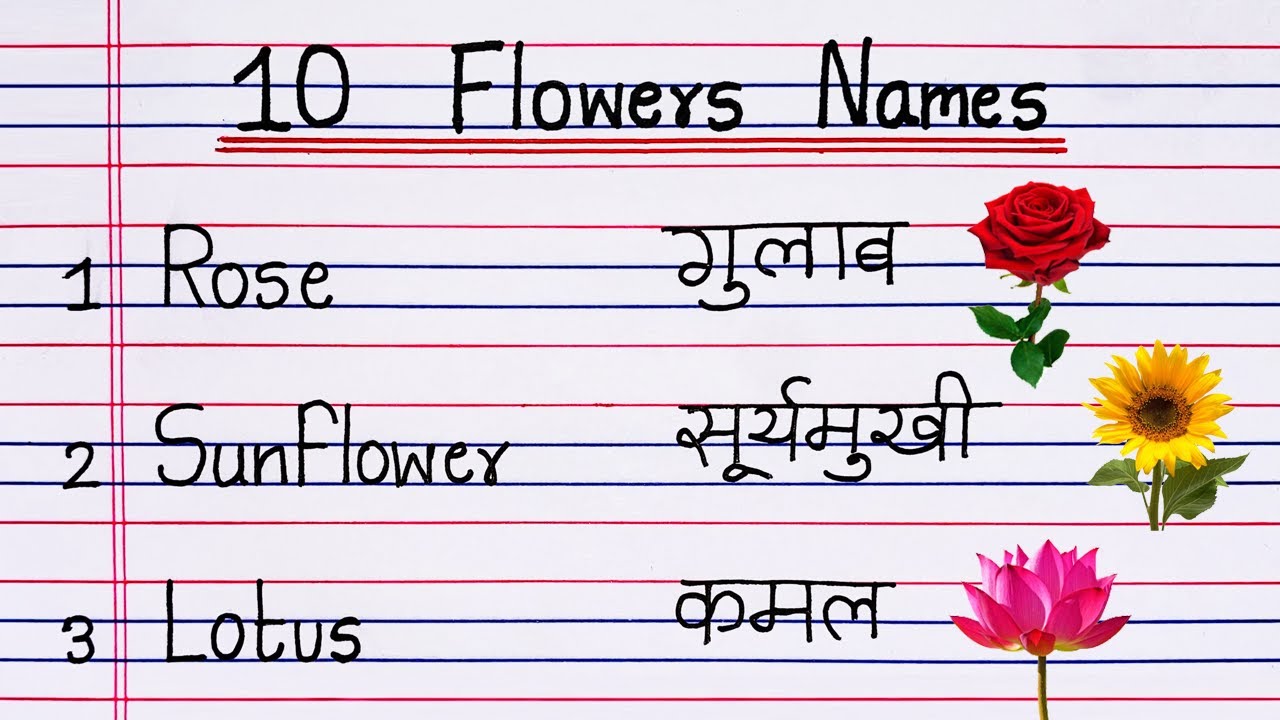 10 Flowers Names
1 Rose गुलाब
2 Sunflower सूर्यमुखी
3 Lotus कमल